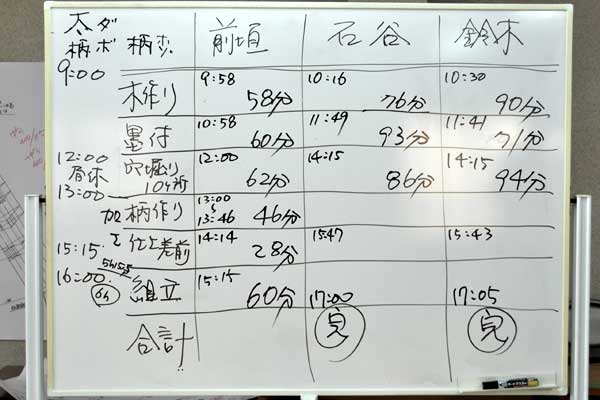 太柄 ダボ 柄ホゾ 前垣 石谷 鈴木
9:00
木作り 9:58 58分 10:16 76分 10:30 90分
墨付 10:58 60分 11:49 93分 11:41 71分
12:00
昼休
13:00
穴掘り 12:00 62分 14:15 86分 14:15 94分
柄作り 13:00 13:46 46分
仕上 差前 14:14 28分 15:47 15:43
15:15
16:00 6h
組立 15:15 60分 17:00 17:05
合計 完 完